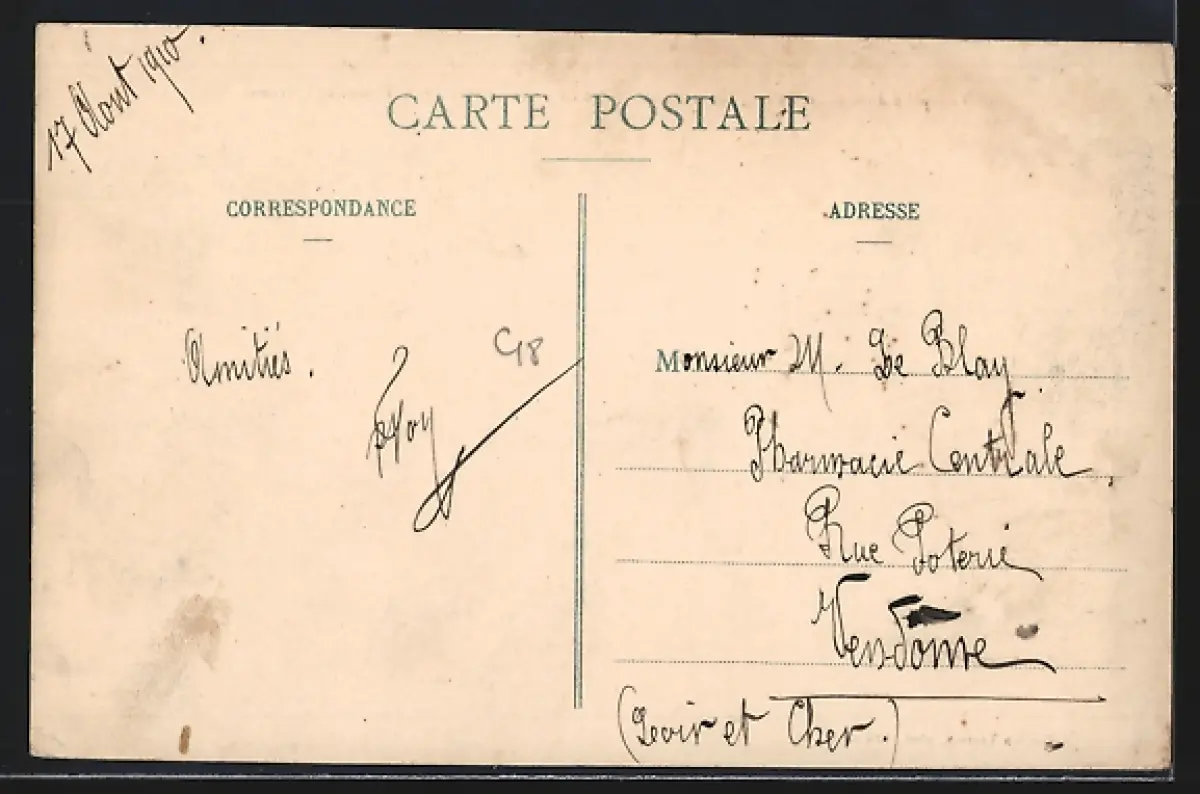 17 Août 1910.
CARTE POSTALE
CORRESPONDANCE
ADRESSE
Amitiés.
G18
Monsieur M. De Blay
Pharmacie Centrale,
Rue Poterie
Vendôme
(Loir et Cher.)